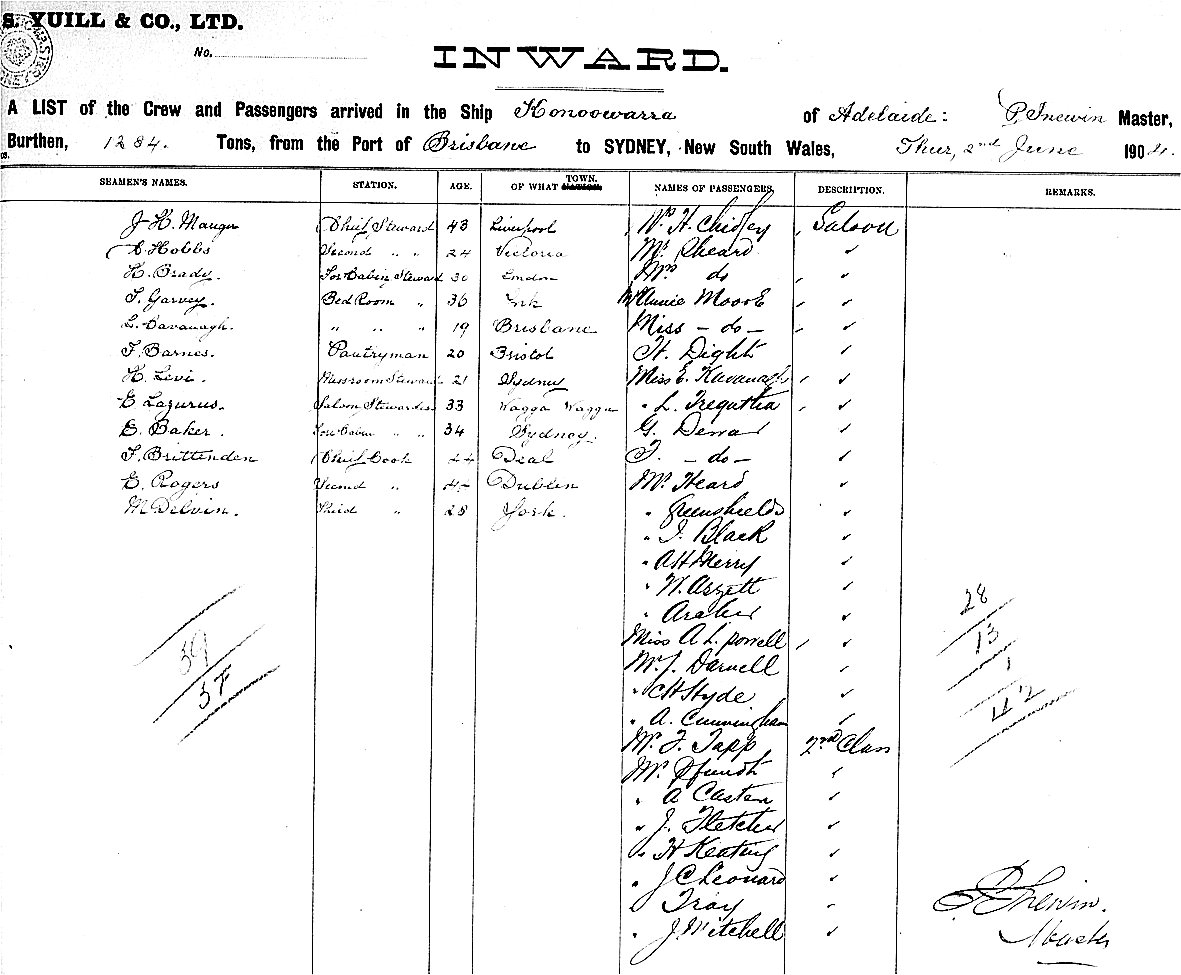 S. YUILL & CO., LTD.
No.
INWARD.
A LIST of the Crew and Passengers arrived in the Ship Konoowarra of Adelaide: Master,
Burthen, 1284. Tons, from the Port of Brisbane to SYDNEY, New South Wales, Thur, 2nd June 1904.
SEAMEN'S NAMES. STATION. AGE. OF WHAT TOWN. NATION. NAMES OF PASSENGERS, DESCRIPTION. REMARKS.
J H. Mauger Chief Steward 43 Liverpool H. Chidley Saloon
Hobbs Second " " 24 Victoria Mr Sheard "
H. Brady. For Cabin Steward 30 London Mrs do "
T. Garvey. Bed Room " 36 Annie Moore "
L. Cavanagh. " " " 19 Brisbane Miss - do - "
F. Barnes. Pantryman 20 Bristol H. Dight "
H. Levi. Messroom Steward 21 Sydney Miss E. Kavanagh "
E. Lazurus. Saloon Stewardess 33 Wagga Wagga " L. Tregutha "
E. Baker. Fore Cabin " " 34 Sydney. G. "
F. Brittenden Chief Cook 44 Deal - do - "
E. Rogers Second " Dublin Mr Heard "
M Delvin. Third " 28 York. " Greenshields "
" J. Black "
" A H Merry "
" W. "
" "
Miss A L. Powell "
Mr J. Darvell "
" C H Hyde "
" A. Cunningham "
Mr. J. Tapp 2nd Class
Mr. Pfundt "
" A Casten "
" J. Fletcher "
" H Keating "
" J C Leonard "
" Troy "
" J. Mitchell "
39
37
28
13
1
42
Master